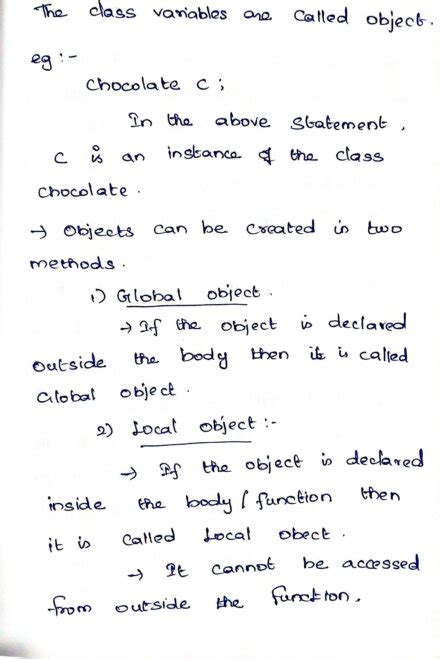 The class variables are called object.
eg :-
Chocolate c ;
In the above statement,
c is an instance of the class
chocolate.
→ Objects can be created in two
methods.
1) Global object.
→ If the object is declared
outside the body then it is called
Global object.
2) Local object :-
→ If the object is declared
inside the body / function then
it is called Local obect.
→ It cannot be accessed
from outside the function.